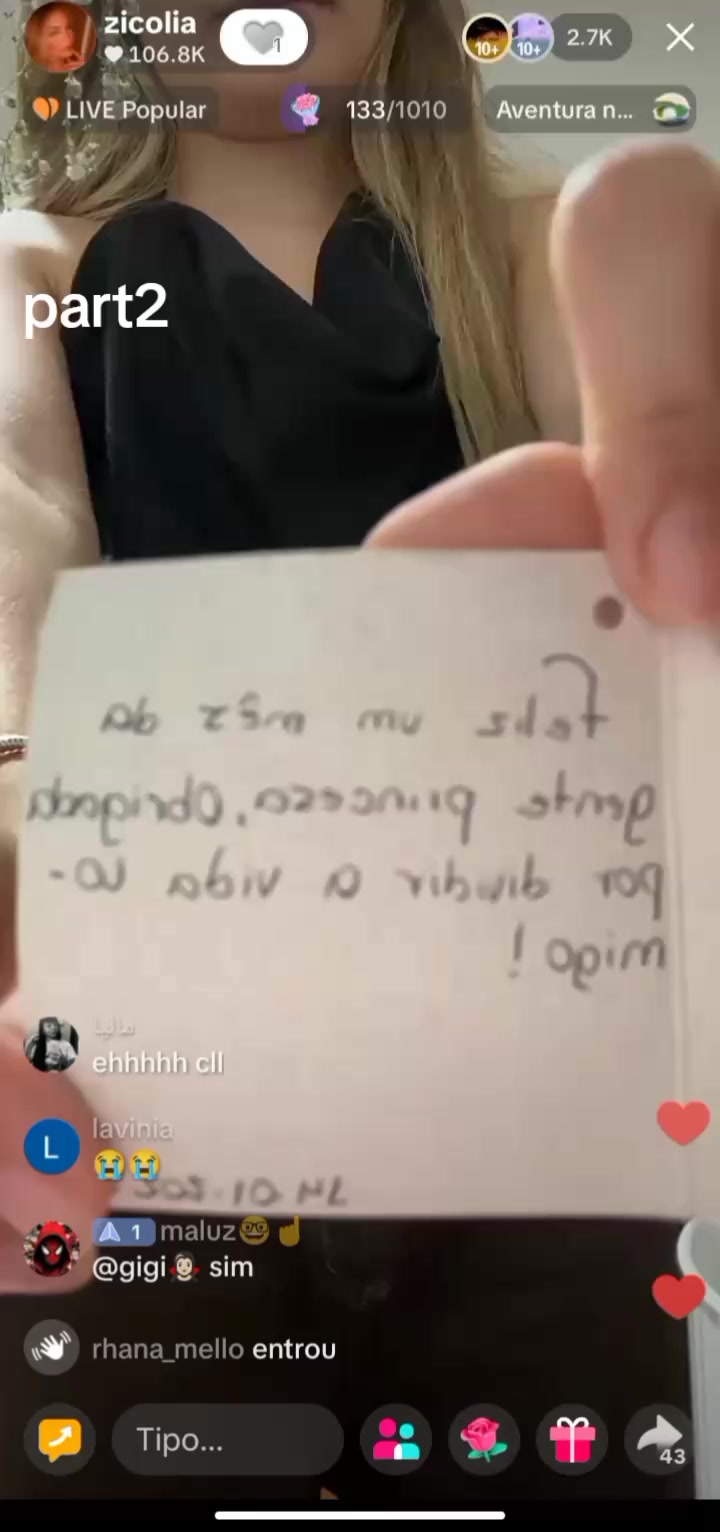 zicolia
106.8K
1
10+
10+
2.7K
LIVE Popular
133/1010
Aventura n...
part2
Feliz um mês da
gente princesa. Obrigada
por dividir a vida co-
migo!
ehhhhh cll
lavinia
L
😭😭
1 maluz🤓☝
@gigi🧛🏻‍♀️ sim
rhana_mello entrou
Tipo...
43